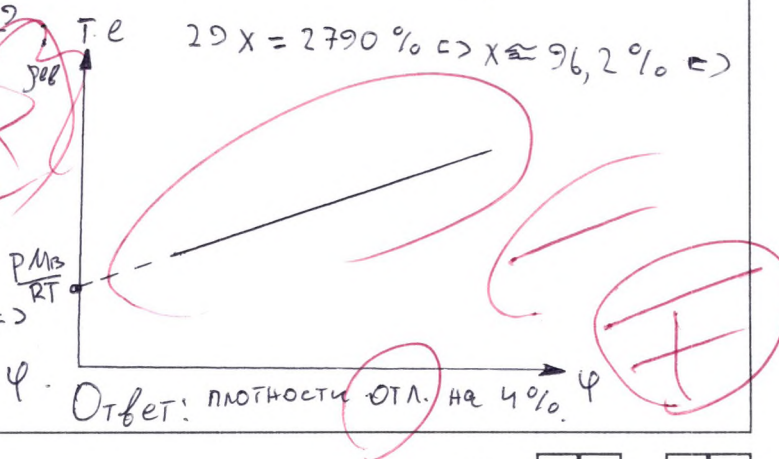 2
Т.е 29 x = 2790 % <=> x ≈ 96,2 % <=>
pMв
RT
=>
φ.
φ
Ответ: плотности отл. на 4%.